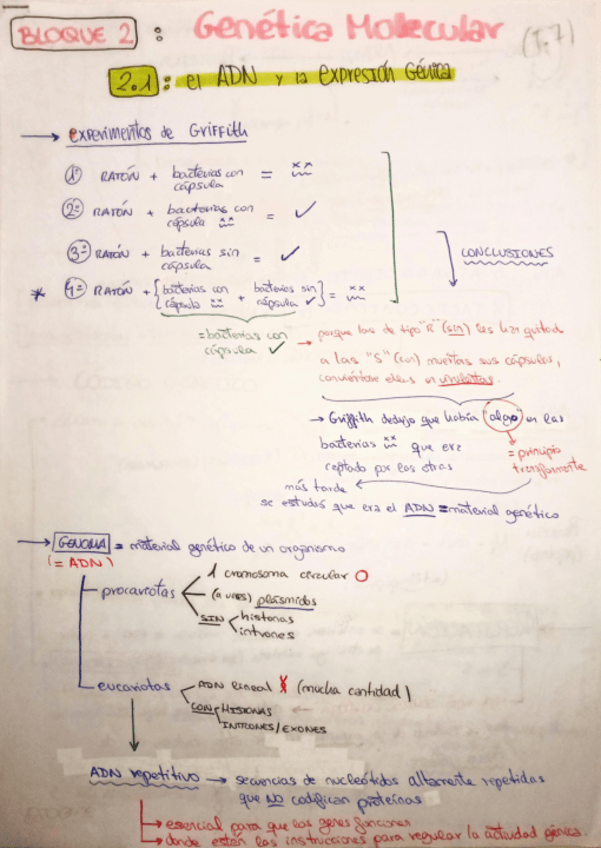 BLOQUE 2 : Genética Molecular (T.7)
2.1 : el ADN y la expresión Génica
→ experimentos de Griffith
1º RATÓN + bacterias con cápsula = xx
2º RATÓN + bacterias con cápsula xx = ✓
3º RATÓN + bacterias sin cápsula = ✓
* 4º RATÓN + {bacterias con cápsula xx + bacterias sin cápsula ✓} = xx
CONCLUSIONES
= bacterias con cápsula ✓
→ porque las de tipo "R" (sin) les han quitado
a las "S" (con) muertas sus cápsulas,
convirtiéndose ellas en virulentas.
→ Griffith dedujo que había "algo" en las
bacterias xx que era
captado por las otras
= principio
transformante
más tarde
se estudió que era el ADN = material genético
→ GENOMA = material genético de un organismo
(= ADN)
procariotas
1 cromosoma circular O
(a veces) plásmidos
SIN histonas
intrones
eucariotas
ADN lineal X (mucha cantidad)
CON HISTONAS
INTRONES/EXONES
ADN repetitivo → secuencias de nucleótidos altamente repetidas
que NO codifican proteínas
→ esencial para que los genes funcionen
→ donde están las instrucciones para regular la actividad génica.